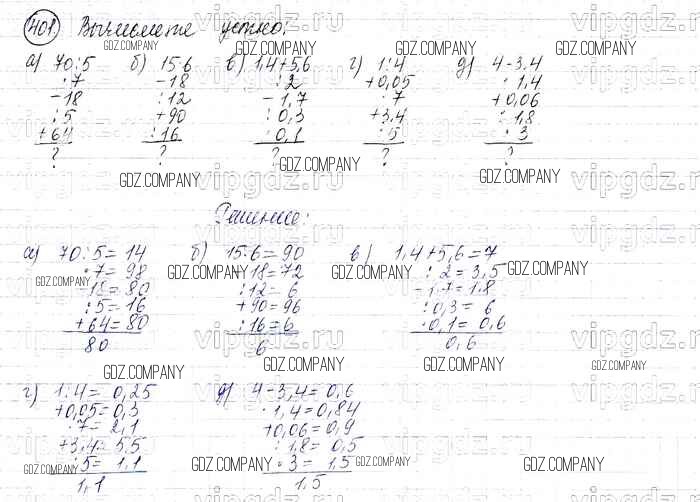 401. Вычислите устно:
а) 70:5 б) 15·6 в) 1,4+5,6 г) 1:4 д) 4-3,4
·7 -18 :2 +0,05 · 1,4
-18 :12 -1,7 · 7 +0,06
:5 +90 : 0,3 +3,4 : 1,8
+64 :16 · 0,1 : 5 · 3
? ? ? ? ?
Решение:
а) 70:5= 14 б) 15·6= 90 в) 1,4+5,6=7
·7= 98 -18=72 : 2= 3,5
-18= 80 :12= 6 -1,7=1,8
:5=16 +90=96 :0,3= 6
+64=80 :16=6 ·0,1= 0,6
80 6 0,6
г) 1:4= 0,25 д) 4-3,4= 0,6
+0,05=0,3 · 1,4=0,84
·7= 2,1 +0,06= 0,9
+3,4= 5,5 : 1,8= 0,5
:5= 1,1 · 3= 1,5
1,1 1,5
GDZ.COMPANY
vipgdz.ru